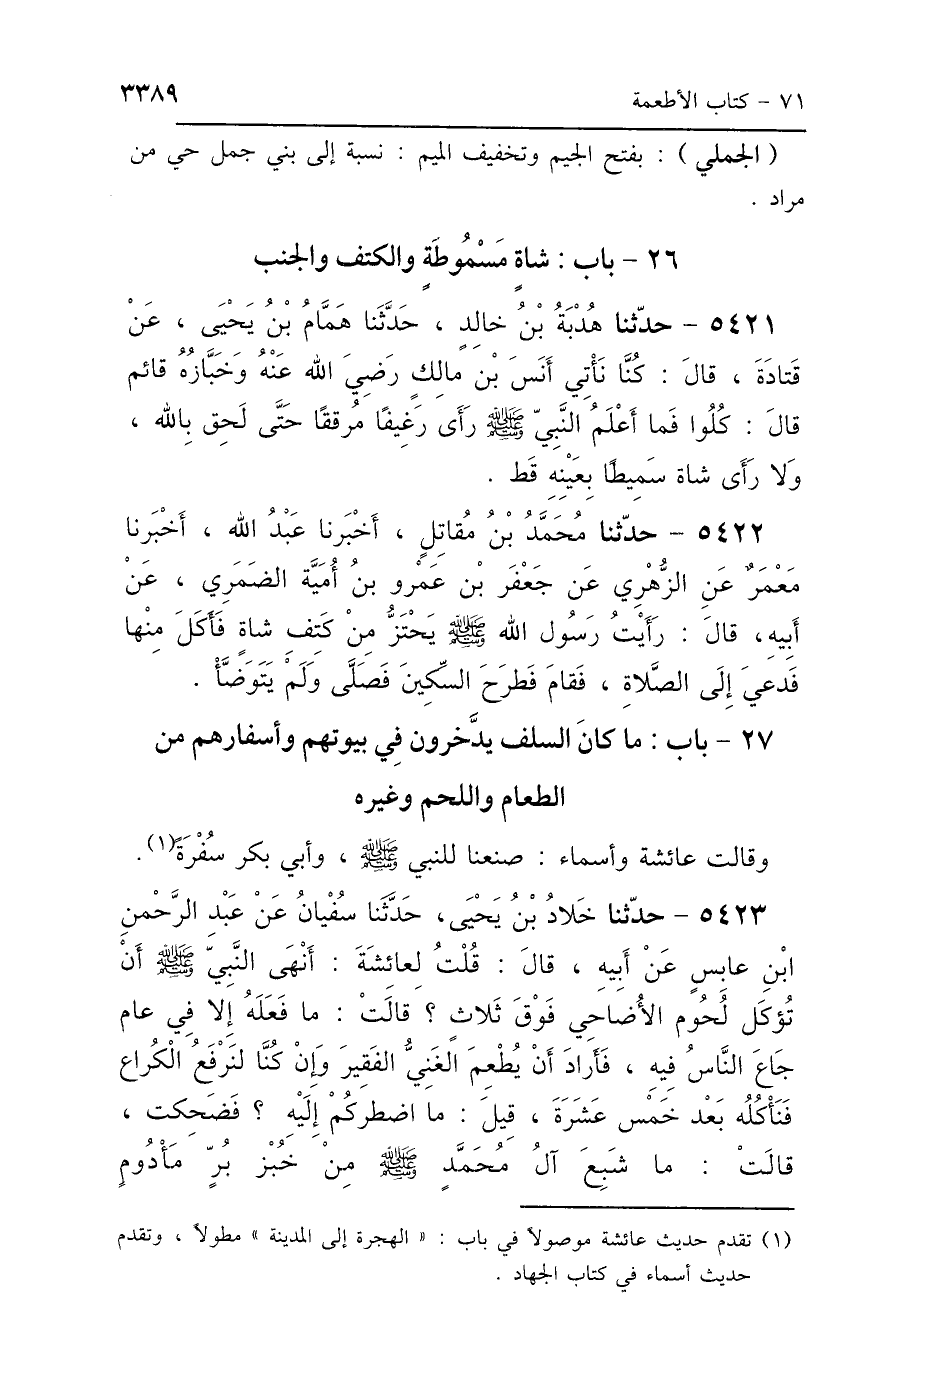 ٧١ - كتاب الأطعمة ٣٣٨٩
( الجملي ) : بفتح الجيم وتخفيف الميم : نسبة إلى بني جمل حي من
مراد .
٢٦ - باب : شاةٍ مَسْمُوطَةٍ والكتف والجنب
٥٤٢١ - حدّثنا هُدْبَةُ بْنُ خالِدٍ ، حَدَّثَنا هَمَّامُ بْنُ يَحْيَى ، عَنْ
قَتادَةَ ، قالَ : كُنَّا نَأْتِي أَنَسَ بْنِ مالِكٍ رَضِيَ الله عَنْهُ وَخَبَّازُهُ قائم
قالَ : كُلُوا فَما أَعْلَمُ النَّبِيّ ﷺ رَأَى رَغِيفًا مُرقَقًا حَتَّى لَحِق بِالله ،
وَلا رَأَى شاة سَمِيطًا بِعَيْنِهِ قَط .
٥٤٢٢ - حدّثنا مُحَمَّدُ بْنُ مُقاتِلٍ ، أَخْبَرنا عَبْدُ الله ، أَخْبَرنا
مَعْمَرٌ عَنِ الزُّهْرِي عَن جَعْفَرَ بْنِ عَمْرو بنُ أُمَيَّة الضمَرِي ، عَنْ
أَبِيهِ، قالَ : رَأَيْتُ رَسُول الله ﷺ يَحْتَزُّ مِنْ كَتِفِ شاةٍ فَأَكَلَ مِنْها
فَدعيَ إِلَى الصَّلاةِ ، فَقامَ فَطرَحَ السِّكِّينَ فَصَلَّى وَلَمْ يَتَوَضَّأْ .
٢٧ - باب : ما كانَ السلف يدَّخرون فِي بيوتهم وأسفارهم من
الطعام واللحم وغيره
وقالت عائشة وأسماء : صنعنا للنبي ﷺ ، وأبي بكر سُفْرَةً(١).
٥٤٢٣ - حدّثنا خَلادُ بْنُ يَحْيَى، حَدَّثَنا سفْيانُ عَنْ عَبْدِ الرَّحْمنِ
ابْنِ عابِسٍ عَنْ أَبِيهِ ، قالَ : قُلْتُ لعائشَةَ : أَنْهَى النَّبِيّ ﷺ أَنْ
تُؤكَل لُحُوم الأُضاحِي فَوْقَ ثَلاثٍ ؟ قالَتْ : ما فَعَلَهُ إِلا فِي عام
جَاعَ النَّاسُ فِيهِ ، فَأَرادَ أَنْ يُطْعِمَ الغَنِيُّ الفَقِيرَ وَإنْ كُنَّا لنَرْفَعُ الْكُراع
فَنَأْكُلُه بَعْد خَمْس عَشَرَةَ ، قيلَ : ما اضطركُمْ إِلَيْهِ ؟ فَضَحِكت ،
قالَتْ : ما شَبِعَ آلُ مُحَمَّدٍ ﷺ مِنْ خُبْزِ بُرّ مَأْدُومٍ
(١) تقدم حديث عائشة موصولاً في باب : « الهجرة إلى المدينة » مطولاً ، وتقدم
حديث أسماء في كتاب الجهاد .